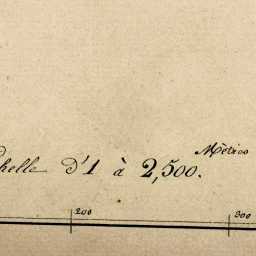 Mètres
chelle d'1 à 2,500.
200 300